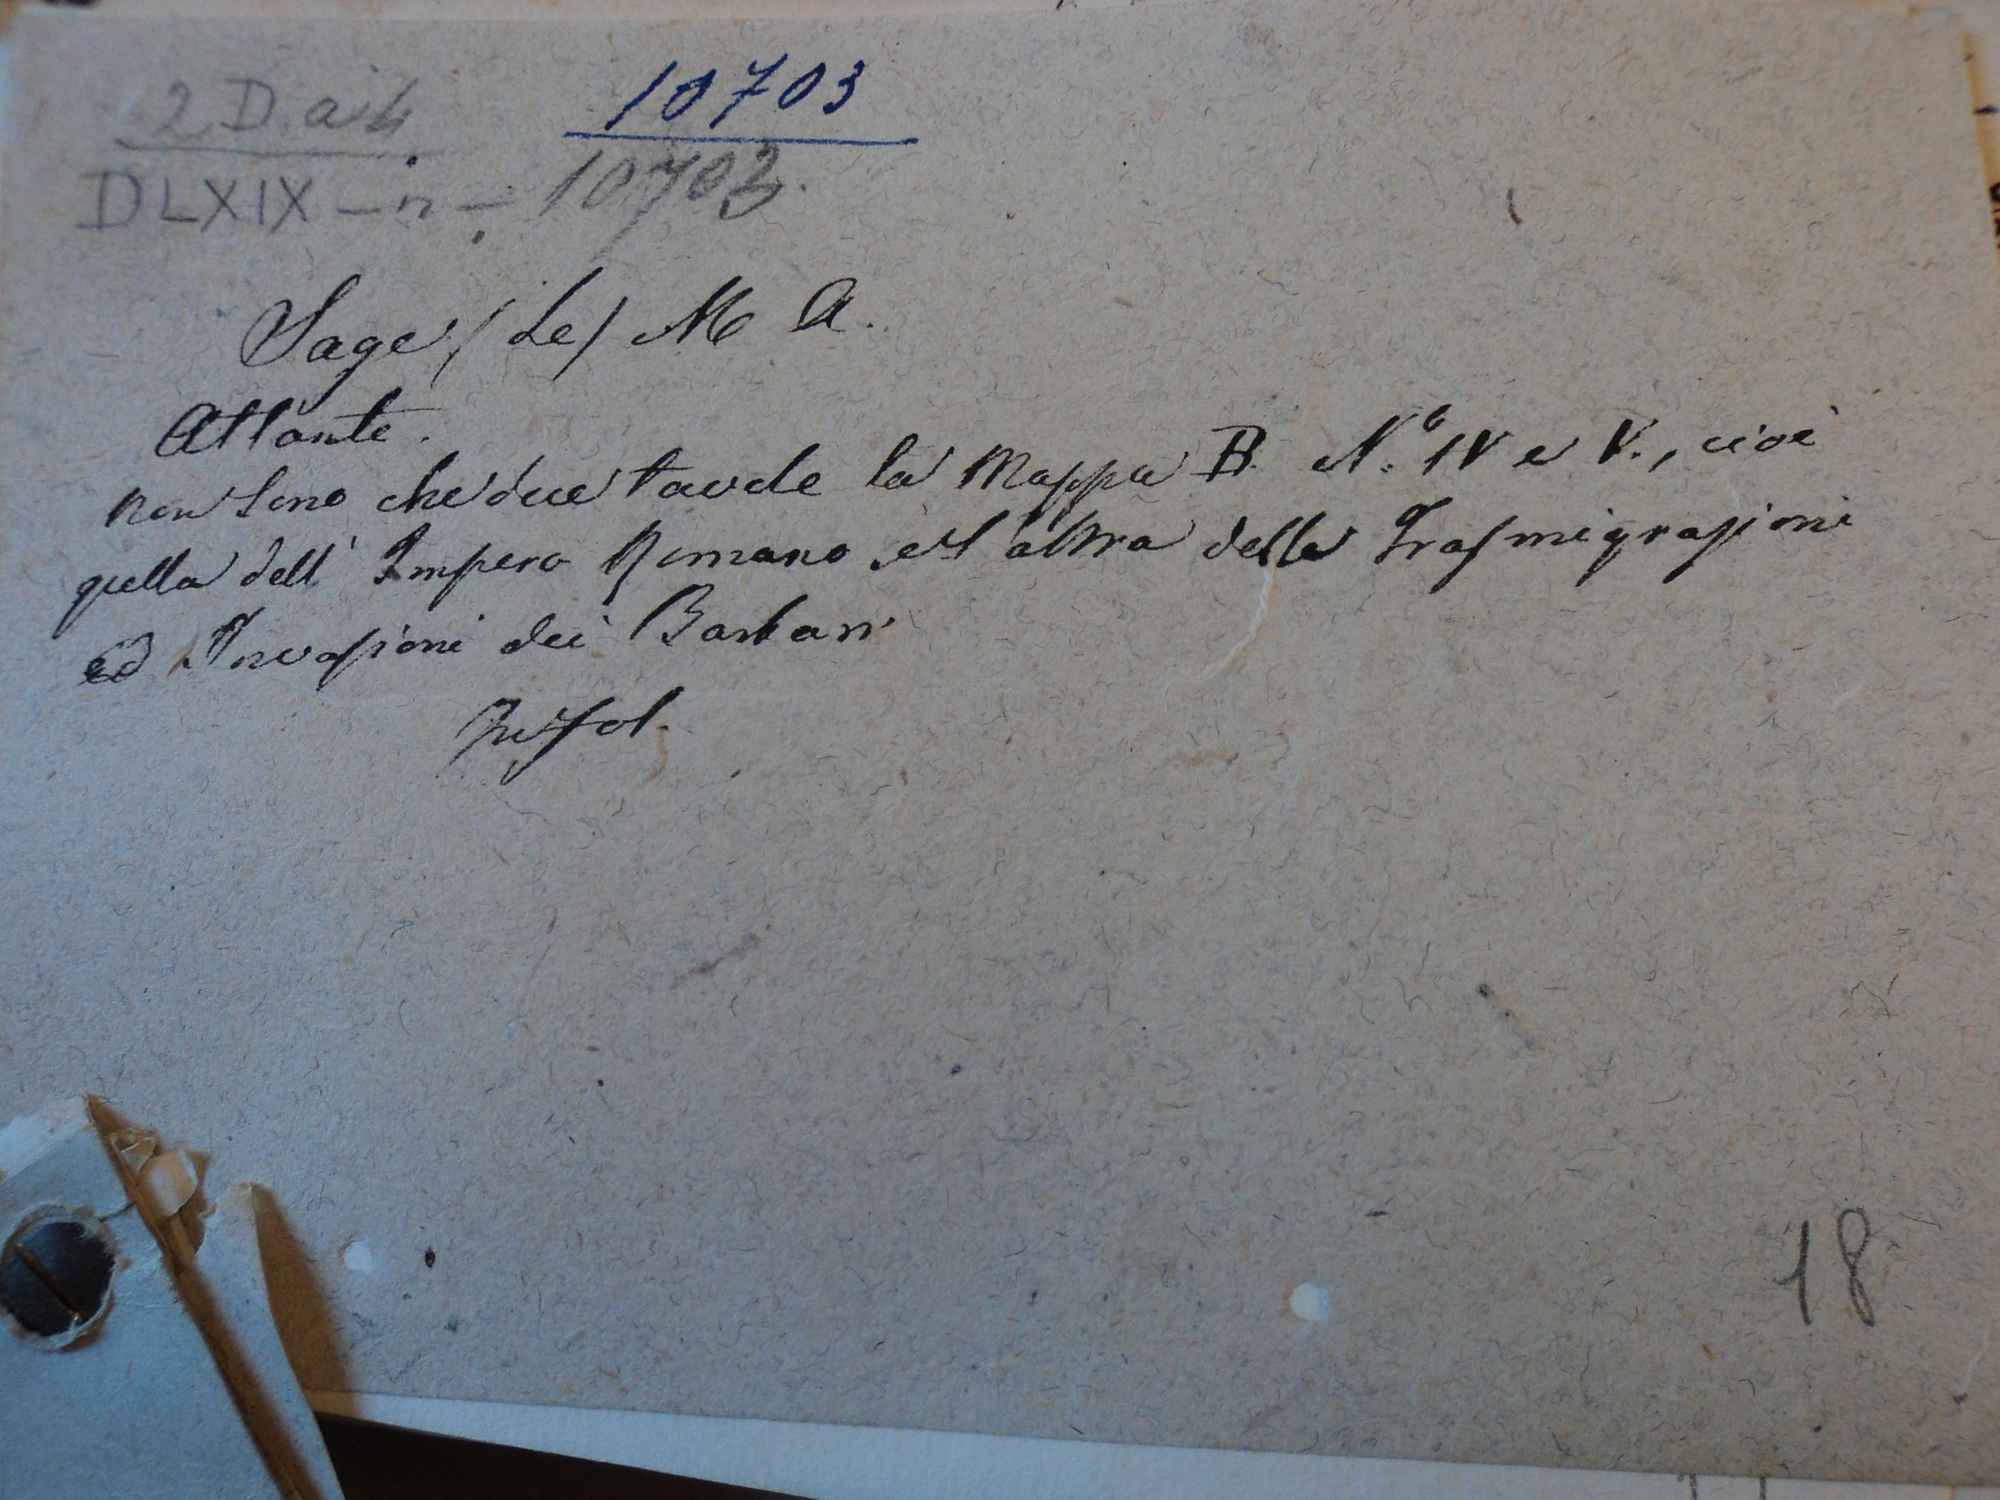 2 D. a 4 10703
DLXIX - n - 10703.
Sage / Le / M A.
Atlante.
non sono che due tavole la Mappa B. N.º IV e V., cioè
quella dell' Impero Romano e l'altra delle Trasmigrasioni
ed Invasioni dei Barbari
In fol.
18